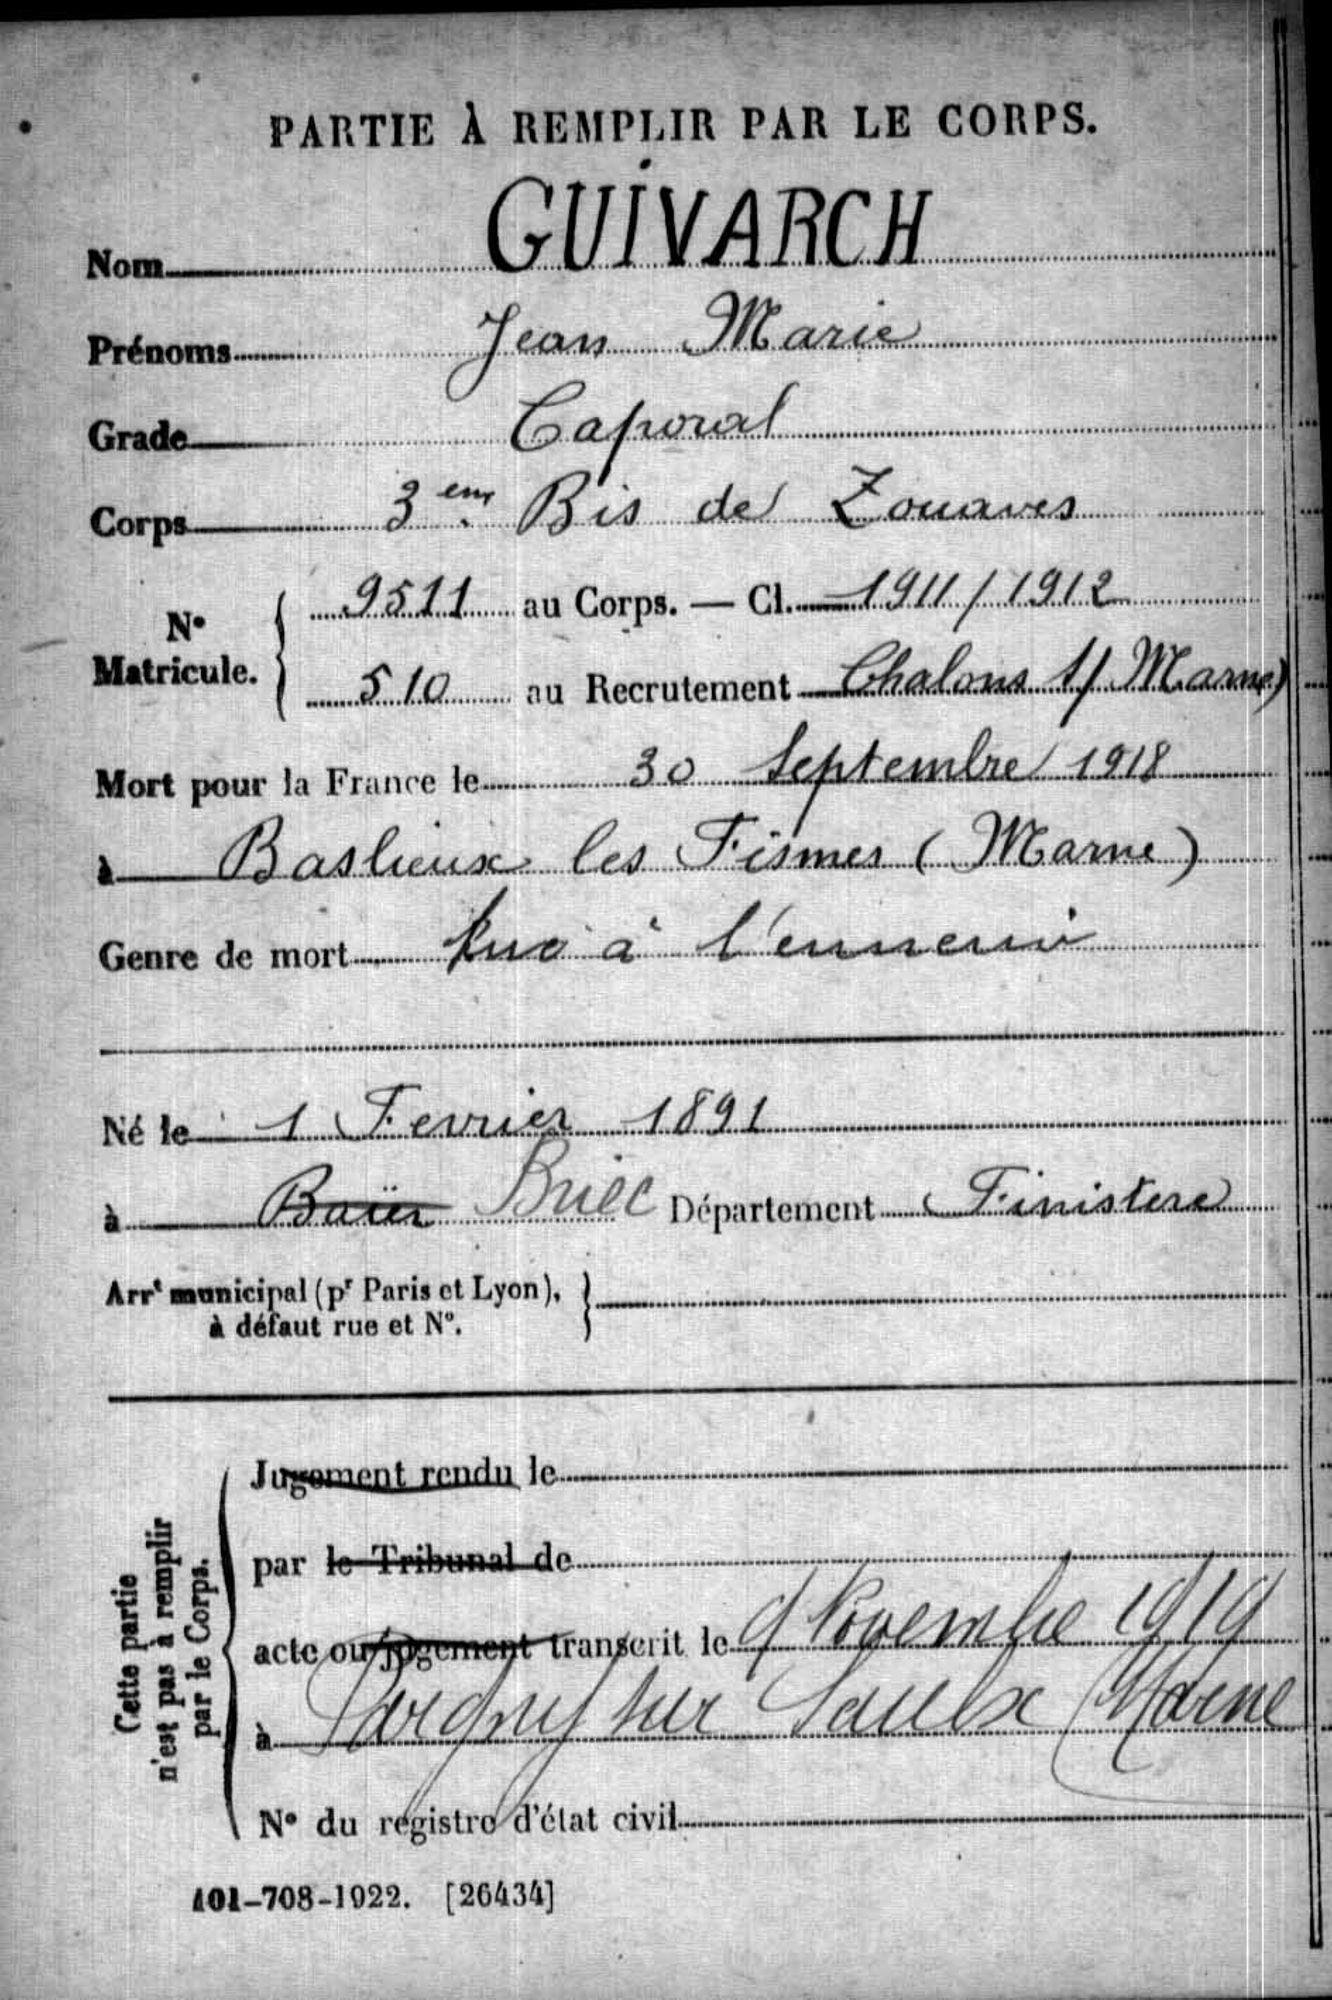 PARTIE À REMPLIR PAR LE CORPS.
Nom GUIVARCH
Prénoms Jean Marie
Grade Caporal
Corps 3eme Bis de Zouaves
N° Matricule. 9511 au Corps. — Cl. 1911/1912
510 au Recrutement Chalons s/ Marne)
Mort pour la France le 30 Septembre 1918
à Baslieux les Fismes (Marne)
Genre de mort Tué à l'ennemi
Né le 1 Fevrier 1891
à Briec Département Finistere
Arrt municipal (pr Paris et Lyon),
à défaut rue et N°.
Cette partie
n'est pas à remplir
par le Corps.
Jugement rendu le
par le Tribunal de
acte ou jugement transcrit le 9 Novembre 1919
à Pargny sur Saulx (Marne
N° du registre d'état civil
101-708-1922. [26434]